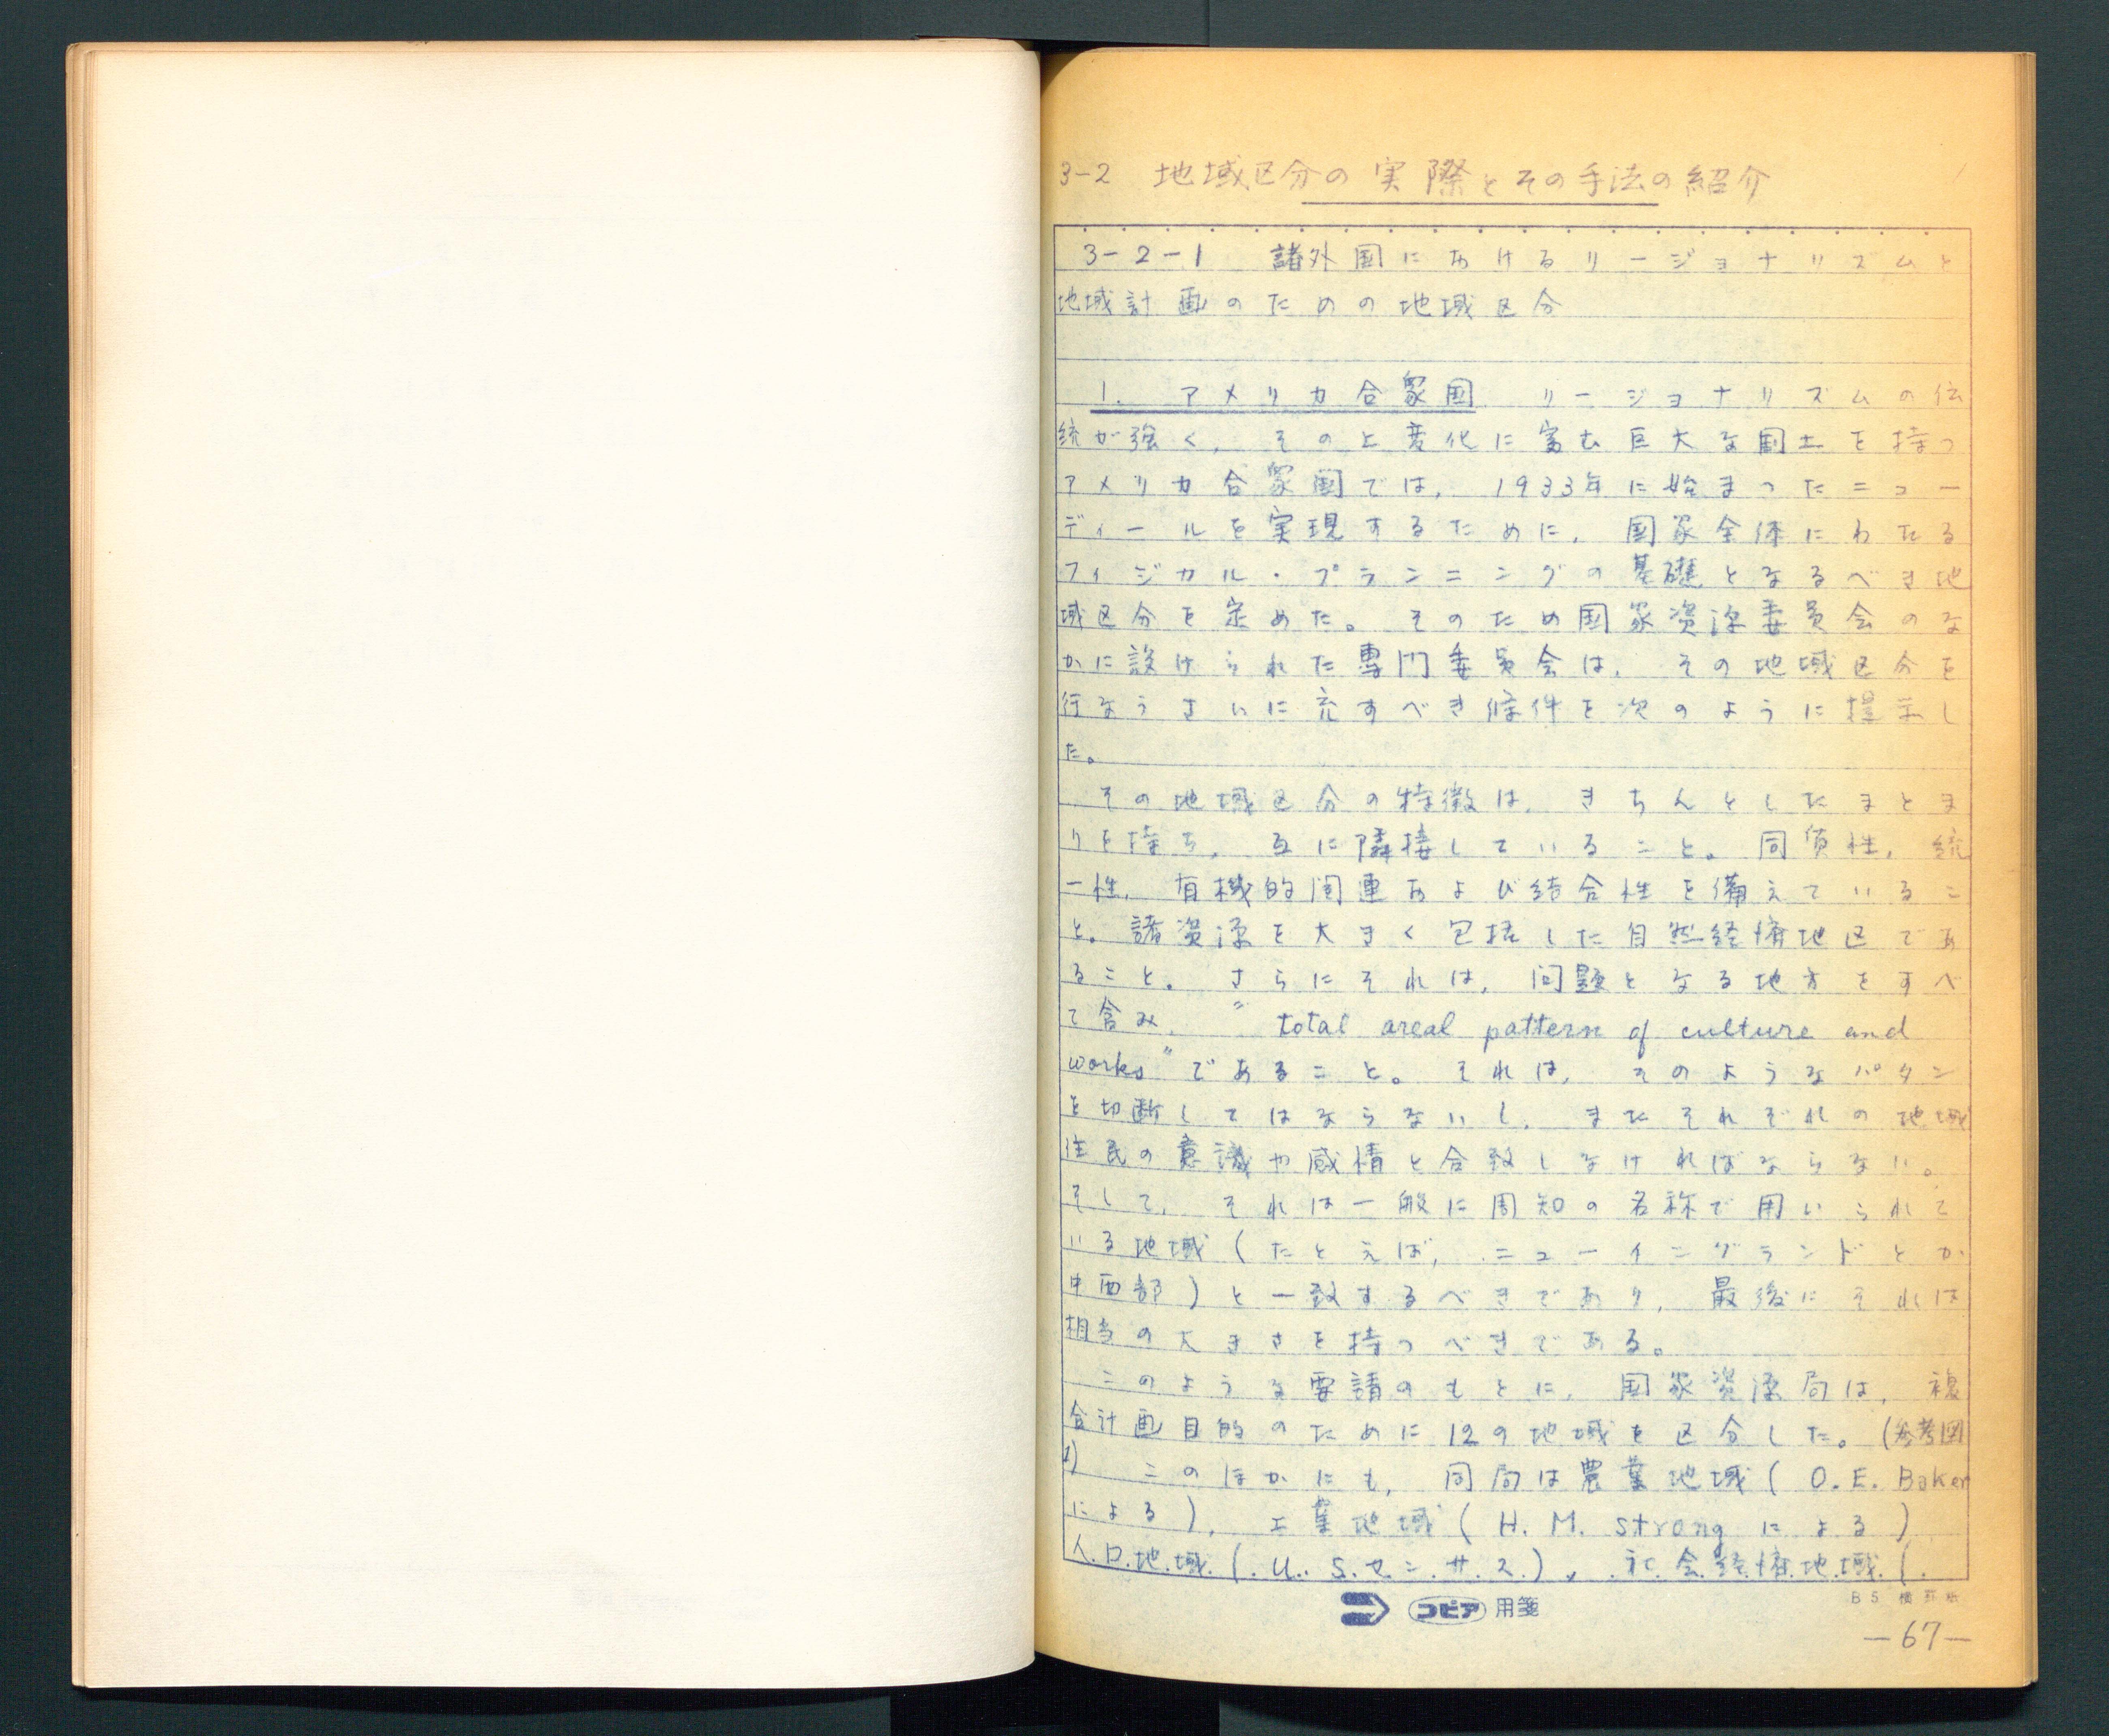 3-2 地域区分の実際とその手法の紹介
3-2-1 諸外国におけるリージョナリズムと
地域計画のための地域区分
1. アメリカ合衆国 リージョナリズムの伝
統が強く、その上変化に富む巨大な国土を持つ
アメリカ合衆国では、1933年に始まったニュー
ディールを実現するために、国家全体にわたる
フィジカル・プランニングの基礎となるべき地
域区分を定めた。そのため国家資源委員会のな
かに設けられた専門委員会は、その地域区分を
行なうさいに充すべき條件を次のように提示し
た。
その地域区分の特徴は、きちんとしたまとま
りを持ち、互に隣接していること。同質性、統
一性、有機的関連および結合性を備えているこ
と。諸資源を大きく包括した自然経済地区であ
ること。さらにそれは、問題となる地方をすべ
て含み、"total areal pattern of culture and
works"であること。それは、そのようなパタン
を切断してはならないし、またそれぞれの地域
住民の意識や感情と合致しなければならない。
そして、それは一般に周知の名称で用いられて
いる地域(たとえば、ニューイングランドとか
中西部)と一致するべきであり、最後にそれは
相当の大きさを持つべきである。
このような要請のもとに、国家資源局は、複
合計画目的のために12の地域を区分した。(参考図
1) このほかにも、同局は農業地域(O.E. Baker
による)、工業地域(H.M. Strongによる)
人口地域(U.S.センサス)、社会経済地域(
コピア用箋
B5 横罫紙
—67—